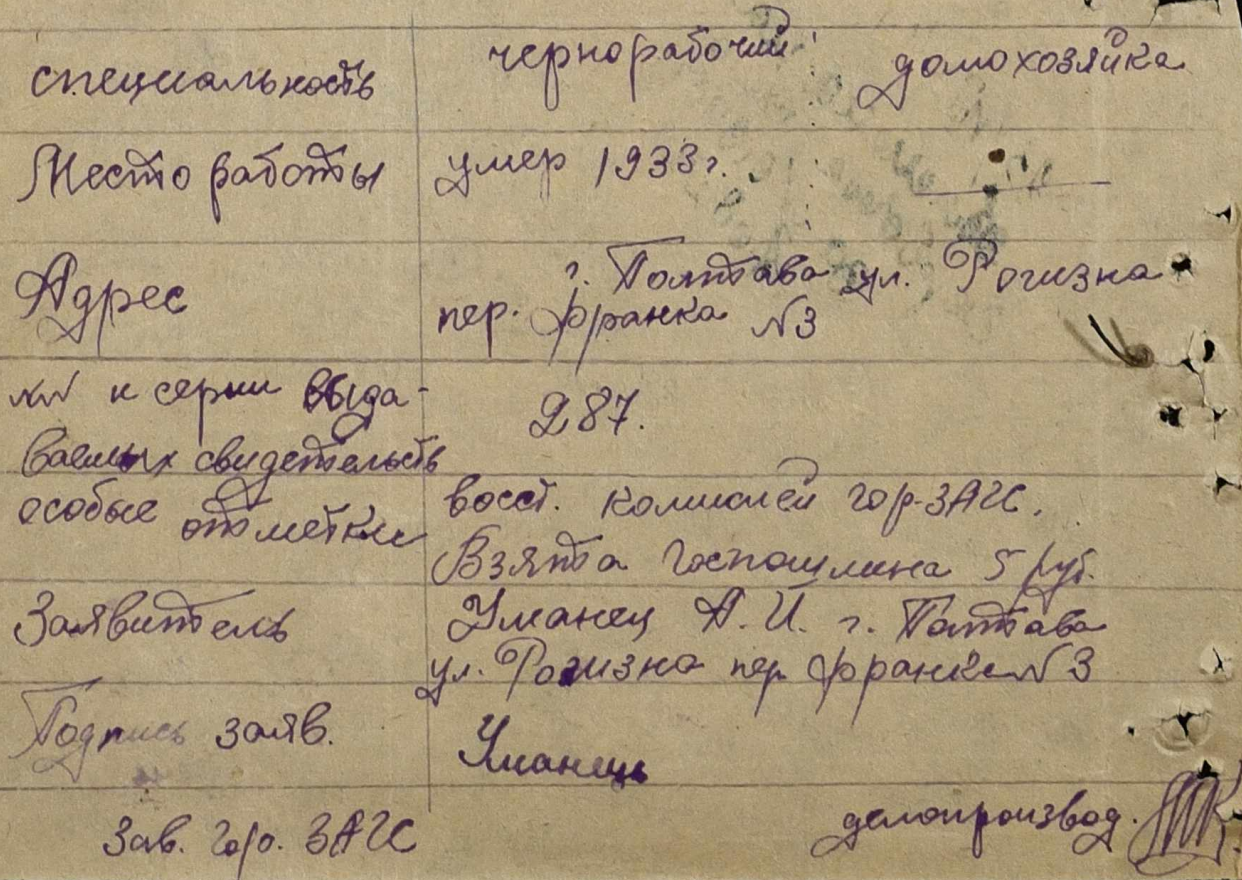 специальность чернорабочий домохозяйка
Место работы умер 1933 г. —"—
Адрес г. Полтава ул. Рогизна
пер. Франка №3
№№ и серии выда-
ваемых свидетельств 287.
особые отметки восст. комиссией гор-ЗАГС.
Взята госпошлина 5 руб.
Заявитель Уманец А. И. г. Полтава
ул. Рогизна пер Франка №3
Подпись заяв. Уманець
Зав. гор. ЗАГС делопроизвод.